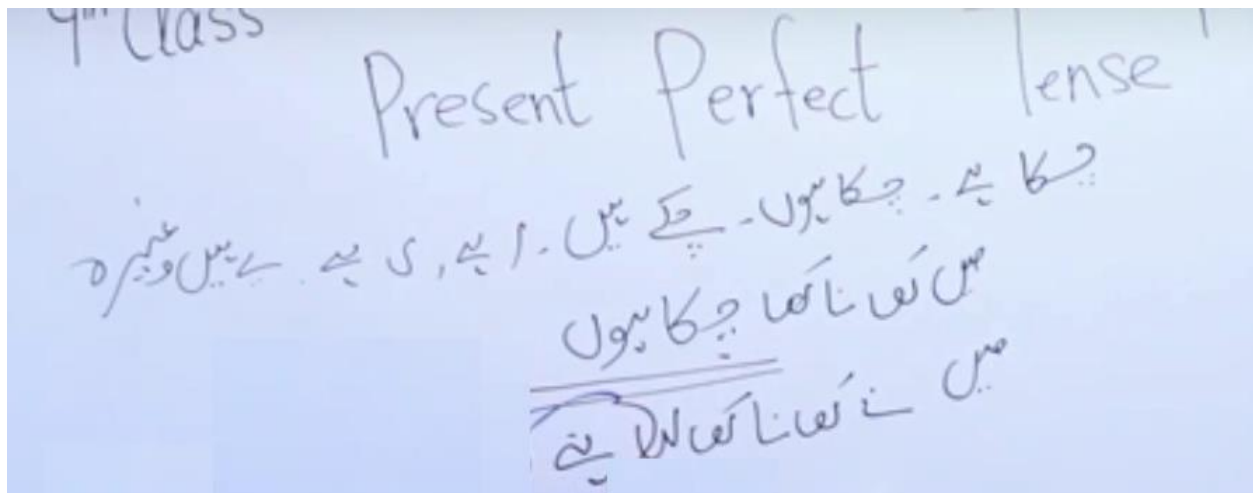 Class
Present Perfect Tense
چکا ہے۔ چکا ہوں۔ چکے ہیں۔ ا ہے, ی ہے ے ہیں وغیرہ
میں کھانا کھا چکا ہوں
میں نے کھانا کھایا ہے